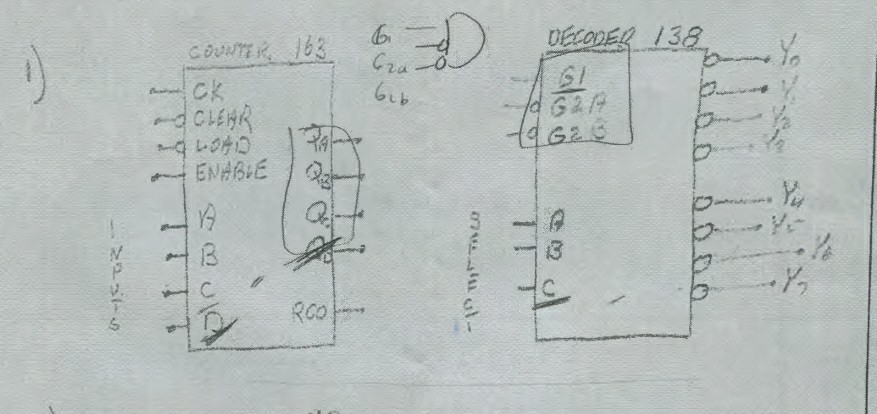 1)
COUNTER 163
CK
CLEAR
LOAD
ENABLE
A
B
C
D
INPUTS
QA
QB
QC
QD
RCO
G1
G2a
G2b
DECODER 138
G1
G2A
G2B
A
B
C
SELECT
Y0
Y1
Y2
Y3
Y4
Y5
Y6
Y7